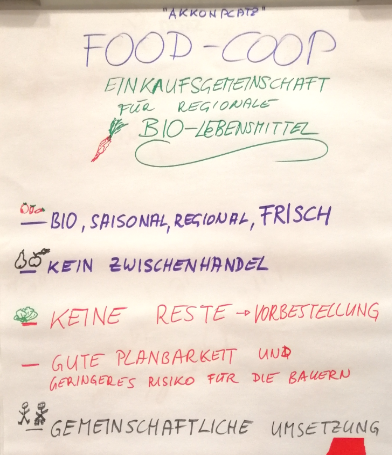 "AKKONPLATZ"
FOOD-COOP
EINKAUFSGEMEINSCHAFT
FÜR REGIONALE
BIO-LEBENSMITTEL
— BIO, SAISONAL, REGIONAL, FRISCH
— KEIN ZWISCHENHANDEL
— KEINE RESTE → VORBESTELLUNG
— GUTE PLANBARKEIT UND
GERINGERES RISIKO FÜR DIE BAUERN
— GEMEINSCHAFTLICHE UMSETZUNG